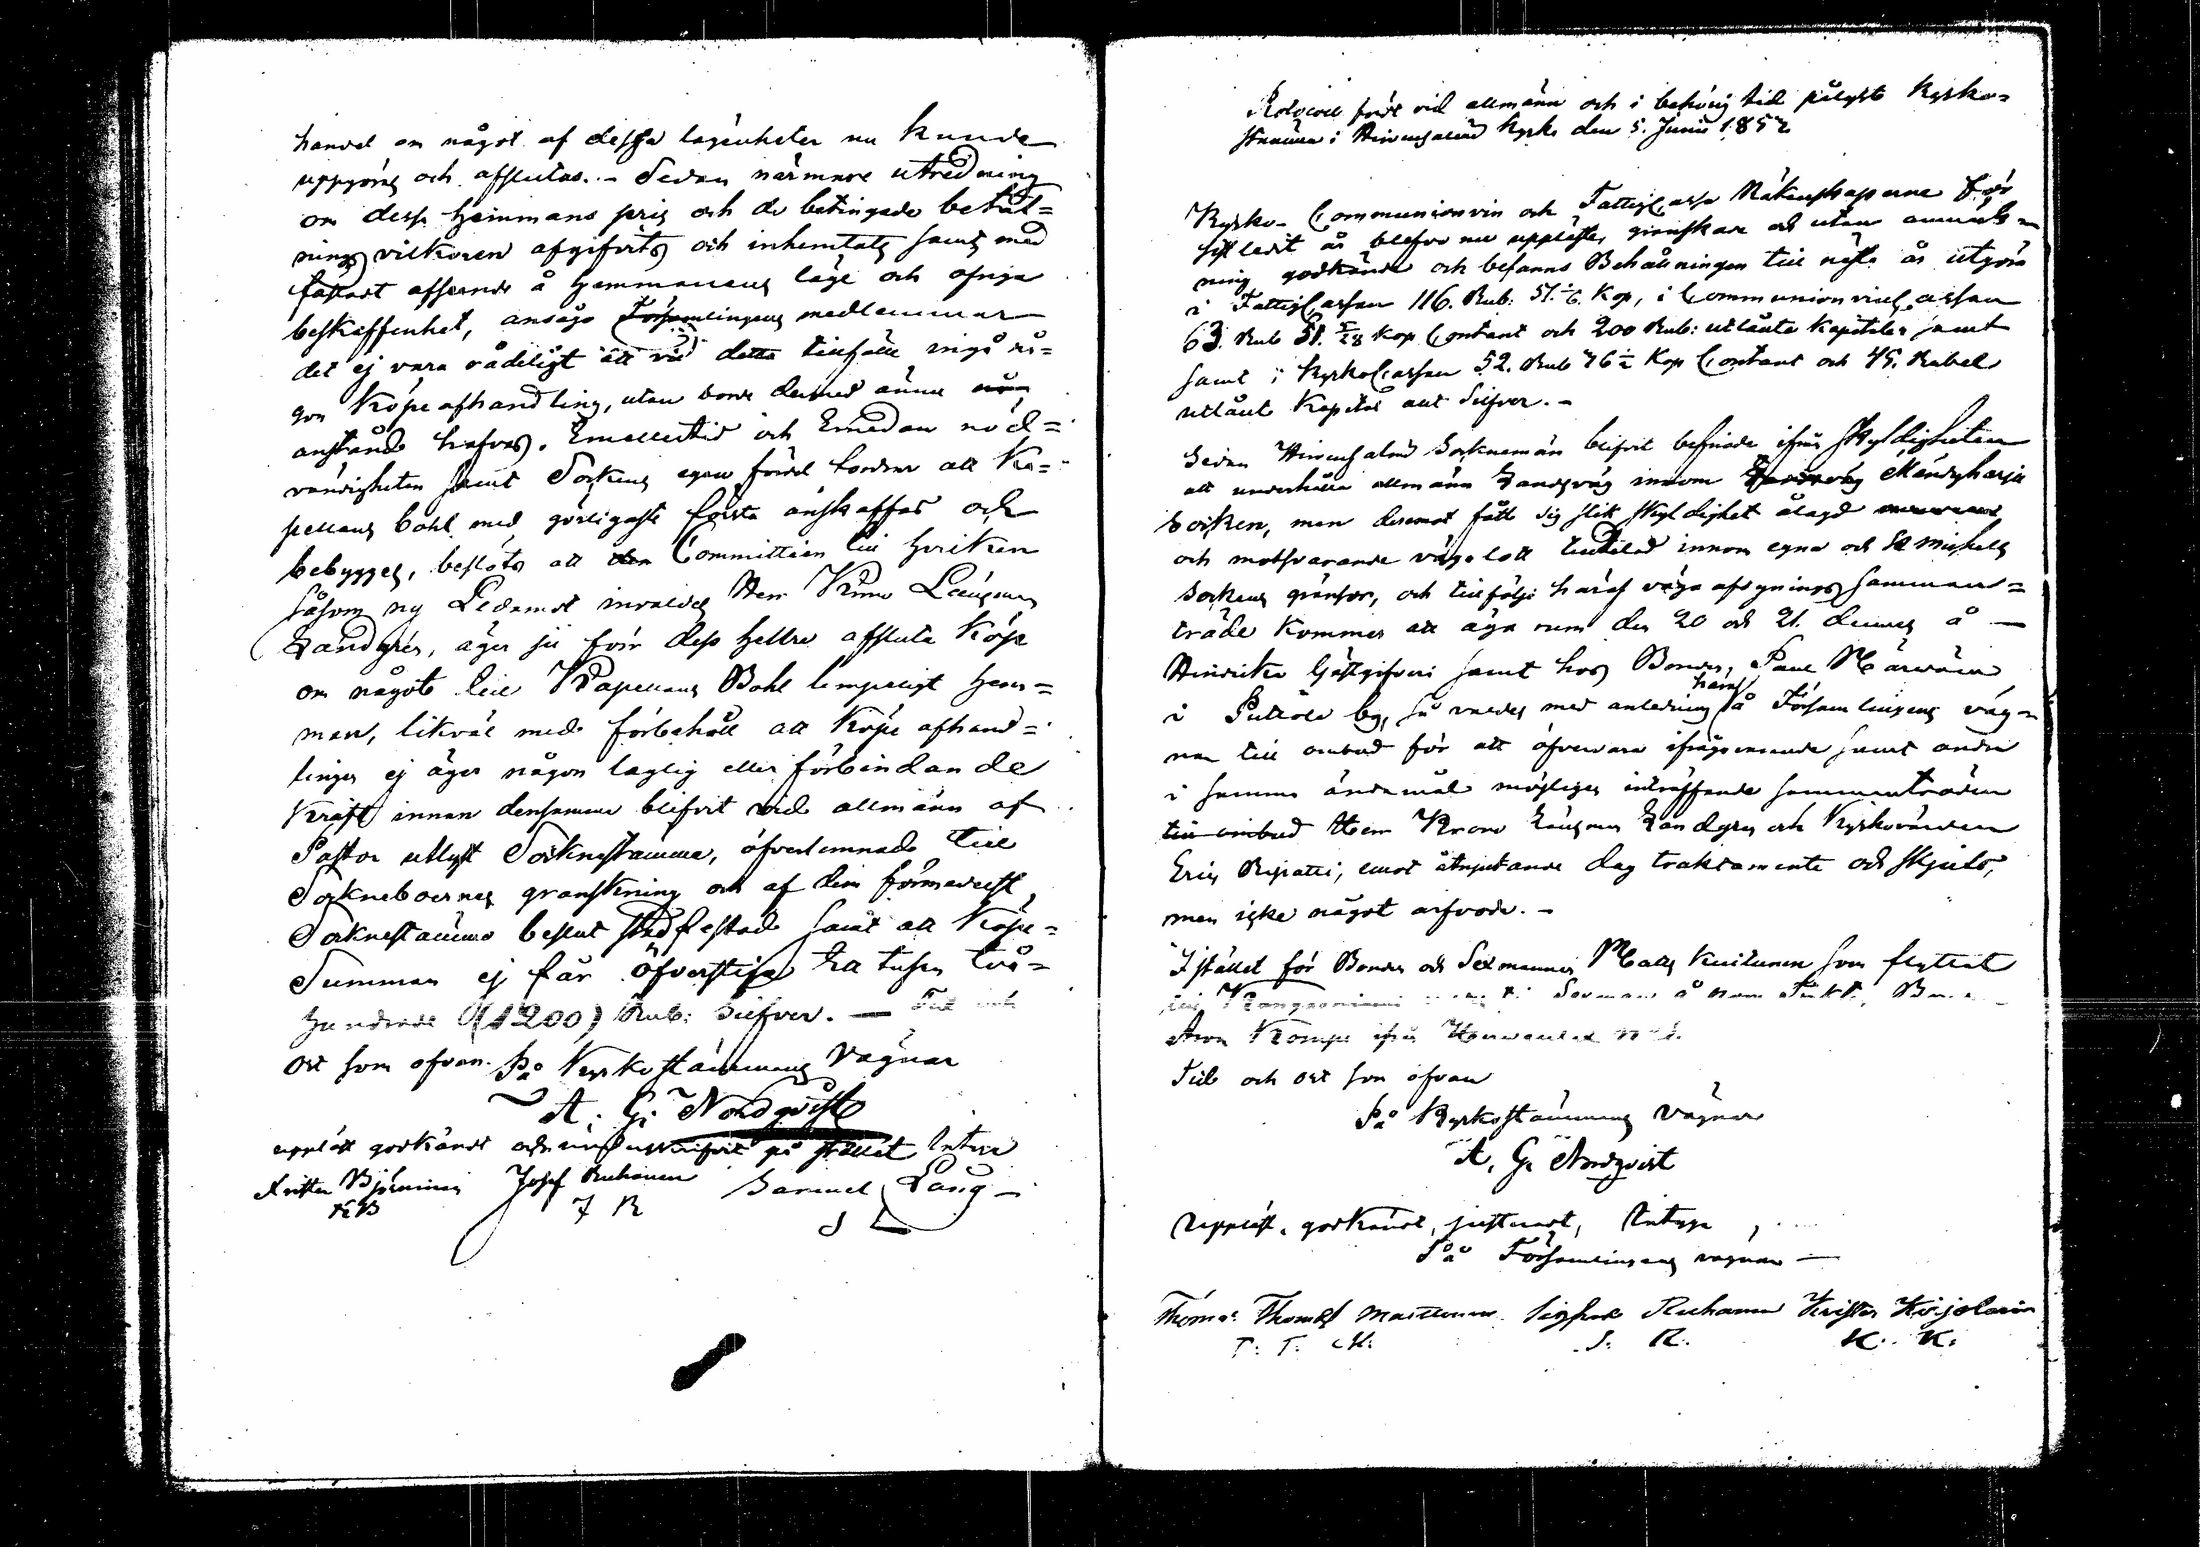 handel om något af dessa lägenheter nu kunde
uppgöras och afslutas. – Sedan närmare utredning
om dess Hemmans pris och de betingade betal=
nings vilkoren afgifvits och inhemtats samt med
fästadt afseende å Hemmanens läge och öfriga
beskaffenhet, ansågo Församlingens medlemmar
det ej vara rådeligt att vid detta tillfälle ingå nå=
gon Köpe afhandling, utan borde dermed ännu
anstånd hafvas. Emellertid och Emedan nöd=
vändigheten samt Sockens egen fördel fordrar att Ka=
pellans bohl med görligaste första anskaffas och
bebygges, beslöts att Committéen till hvilken
såsom ny Ledamot invaldes Herr Krono Länsman
Landgrén, äger ju förr dess hellre afsluta Köp
om något till Kapellans Bohl lempeligt Hem=
man, likväl med förbehåll att Köpe afhand=
lingen ej äger någon laglig eller förbindande
Kraft innan densamma blifvit vid allmänn af
Pastor utlyst Socknestämma, öfverlemnad till
Sockneboernes granskning och af dem förmedelst
Socknestämmo beslut stadfestad samt att Köpe=
Summan ej får öfverstiga Ett tusen två=
hundrade (1200) Rub: Silfver. –
Ort som ofvan. På Kyrkostämmans vägnar
A. G. Nordqvist
uppläst godkändt och underskrifvit på stället Intyga
Krister Björninen Josef Ruhanen Samuel Lang
KB J R S L
Protocoll fördt vid allmänn och i behörig tid pålyst Kyrko=
stämma i Hirvensalmi Kyrka den 5. Junii 1852
Kyrko- Communionvin och FattigCassa Räkenskaperne för
sistledit år blefvo nu upplästa, granskade och utan anmärk=
ning godkände och befanns Behållningen till nästa år utgöra
i FattigCassan 116. Rub: 51. Kop, i CommunionvinsCassan
63. Rub Kop Contant och 200 Rub: utlånte Kapitaler samt
samt i KyrkoCassan 52. Rub 76½ Kop Contant och 45. Rubel
utlånt Kapital allt Silfver. –
Sedan Hirvensalmi Socknemän blifvit befriade ifrån skyldigheten
att underhålla allmänn Landsväg innom Mäntyharju
Socken, men deremot fått sig slik skyldighet ålagd
och motsvarande vägalott tilldelad innom egna och St Michels
Sockens gränsor, och tillfölje häraf väga afsynings samman=
träde kommer att äga rum den 20 och 21. dennes å –
Hindrika Gästgifveri samt hos Bonden, Paul Närväin
i Puttola by, så valdes med anledning häraf å Församlingens väg=
nar till ombud för att öfvervara ifrågavarande samt andra
i samma ändamål möjligen inträffande sammanträden
till ombud Herr Krono Länsman Landgren och Kyrkovärden
Eric Ripatti, emot åtnjutande dag traktamente och skjuts,
men icke något arfvode. –
I stället för Bonden och Sexmannen Matts Kuitunen som flyttat
till Kangasniemi Sexman å
Aron Komppi ifrån
Tid och ort som ofvan
På Kyrkostämmans vägnar
A. G. Nordqvist
Uppläst, godkändt, justerat, Intyga
På Församlingens vägnar –
Thomas Thomass Marttinen Sigfred Ruhanen Krister Kirjolainen
T. T. M. S. R. K. K.